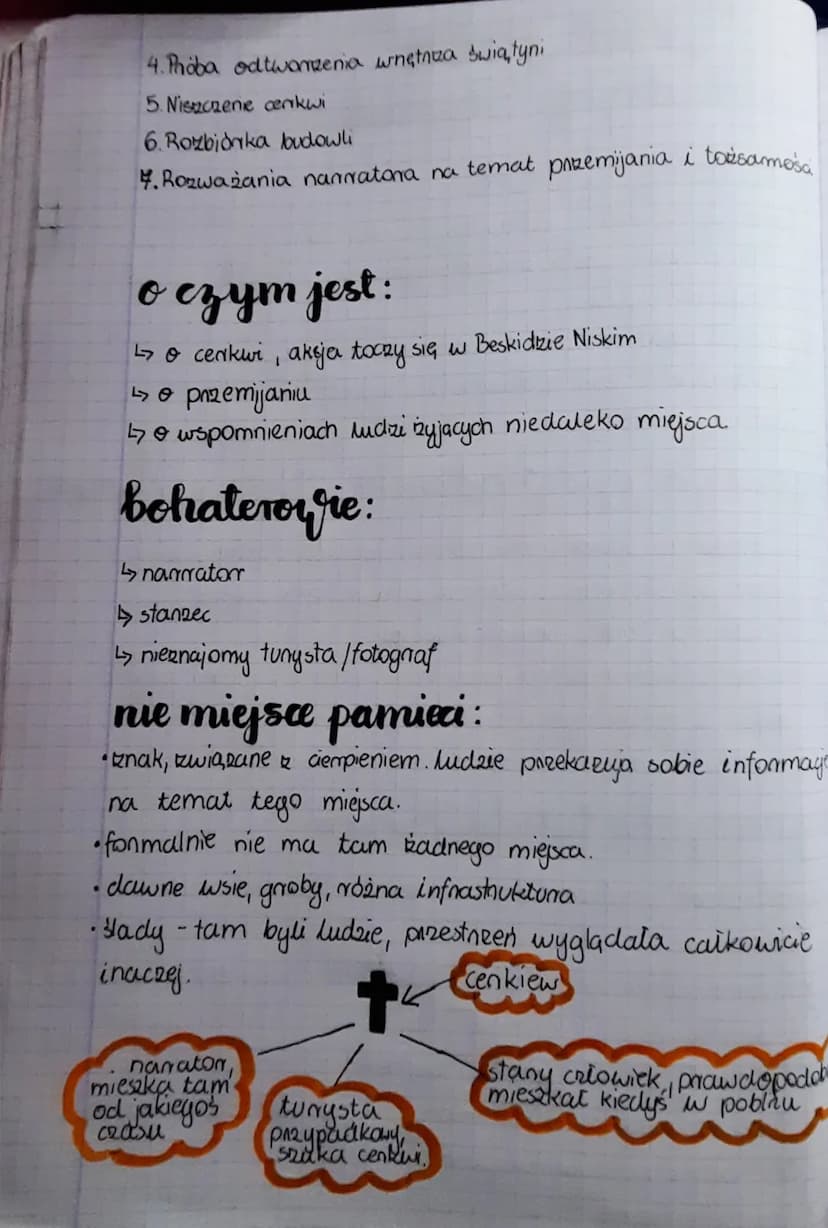 4. Próba odtworzenia wnętrza świątyni
5. Niszczenie cerkwi
6. Rozbiórka budowli
7. Rozważania narratora na temat przemijania i tożsamości
o czym jest:
↳ o cerkwi, akcja toczy się w Beskidzie Niskim
↳ o przemijaniu
↳ o wspomnieniach ludzi żyjących niedaleko miejsca
bohaterowie:
↳ narrator
↳ starzec
↳ nieznajomy turysta/fotograf
nie miejsce pamięci:
• znak, związane z cierpieniem. ludzie przekazują sobie informacje
na temat tego miejsca.
• formalnie nie ma tam żadnego miejsca.
• dawne wsie, groby, różna infrastruktura
• ślady - tam byli ludzie, przestrzeń wyglądała całkowicie
inaczej.
cerkiew
narrator,
mieszka tam
od jakiegoś
czasu
turysta
przypadkowy,
szuka cerkwi.
stary człowiek, prawdopodob
mieszkał kiedyś w pobliżu